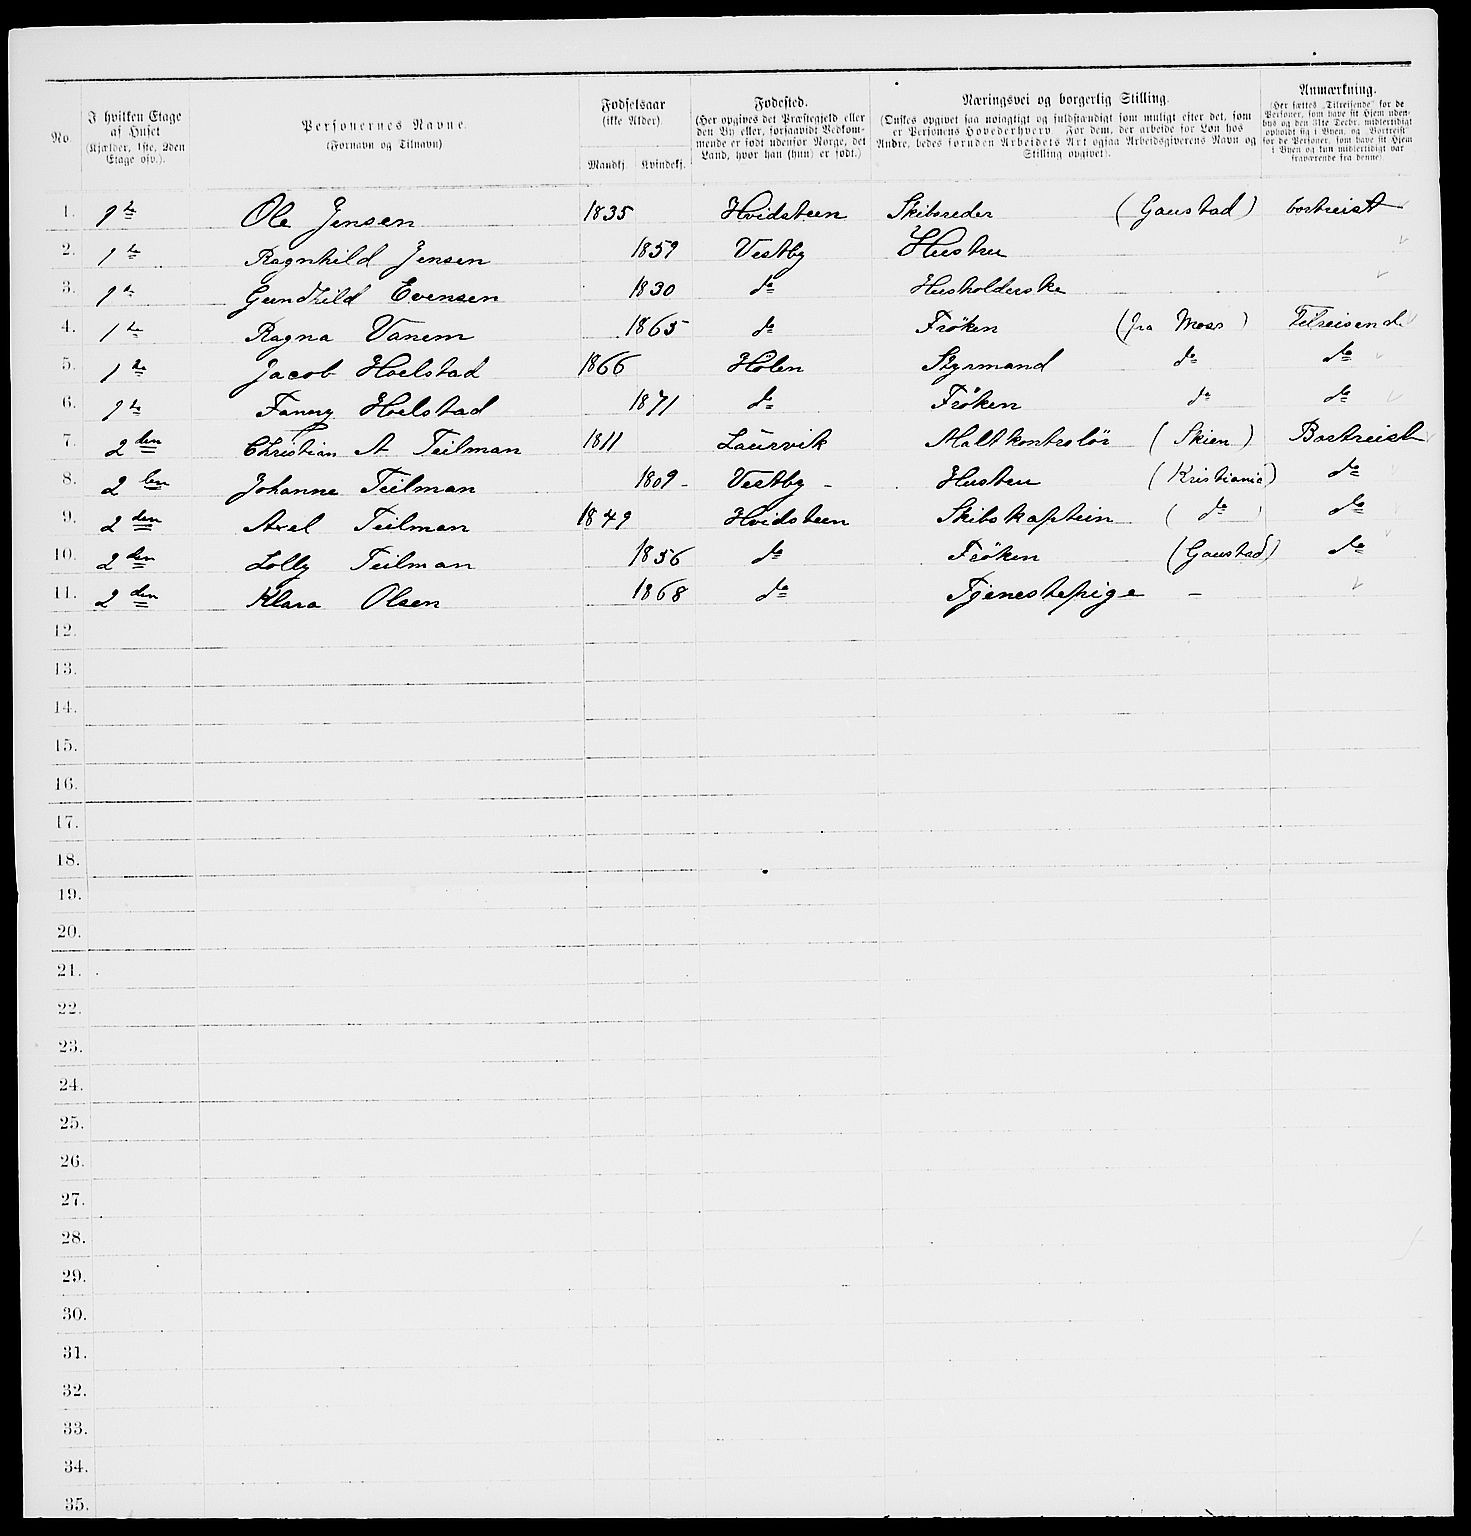 No.
I hvilken Etage af Huset (Kjælder, 1ste, 2den Etage osv.).
Personernes Navne. (Fornavn og Tilnavn)
Fødselsaar (ikke Alder).
Mandkj. Kvindekj.
Fødested. (Her opgives det Præstegjeld eller den By eller, forsaavidt Vedkommende er født udenfor Norge, det Land, hvor han (hun) er født.)
Næringsvei og borgerlig Stilling. (Ønskes opgivet saa nøiagtigt og fuldstændigt som muligt efter det, som er Personens Hovederhverv. For dem, der arbeide for Løn hos Andre, bedes foruden Arbeidets Art ogsaa Arbeidsgiverens Navn og Stilling opgivet).
Anmærkning. (Her sættes „Tilreisende“ for de Personer, som have sit Hjem udenbys og den 31te Decbr. midlertidigt opholdt sig i Byen, og „Bortreist“ for de Personer, som have sit Hjem i Byen og kun midlertidigt var fraværende fra denne)
1. 1ste Ole Jensen 1835 Hvidsteen Skibsreder (Gaustad) bortreist
2. 1ste Ragnhild Jensen 1859 Vestby Hustru
3. 1ste Gundhild Evensen 1830 do Husholderske
4. 1ste Ragna Vanem 1865 do Frøken (fra Moss) Tilreisende
5. 1ste Jacob Hoelstad 1866 Holen Styrmand do do
6. 1ste Fanny Hoelstad 1871 do Frøken do do
7. 2den Christian A Teilman 1811 Laurvik Maltkontrolør (Skien) Bortreist
8. 2den Johanne Teilman 1809 - Vestby - Hustru (Kristiania) do
9. 2den Axel Teilman 1849 Hvidsteen Skibskaptein (do) do
10. 2den Lolly Teilman 1856 do Frøken (Gaustad) do
11. 2den Klara Olsen 1868 do Tjenestepige -
12.
13.
14.
15.
16.
17.
18.
19.
20.
21.
22.
23.
24.
25.
26.
27.
28.
29.
30.
31.
32.
33.
34.
35.